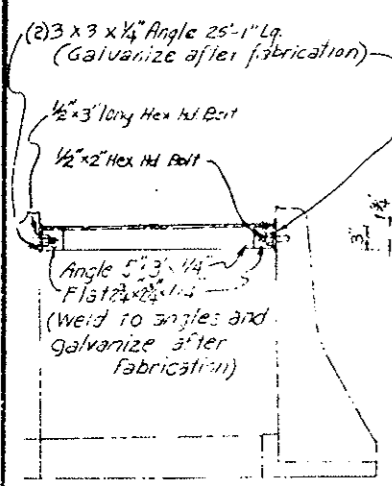 (2) 3 x 3 x 1/4" Angle 25'-1" Lg.
(Galvanize after fabrication)
1/2" x 3" long Hex Hd Bolt
1/2" x 2" Hex Hd Bolt
3"
1 3/4"
Angle 5" x 3" x 1/4"
Flat
(Weld to angles and
galvanize after
fabrication)